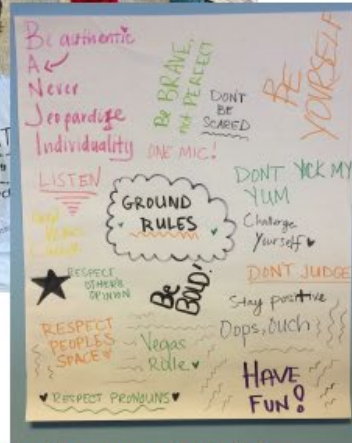 Be authentic
A
Never
Jeopardize
Individuality
Be BRAVE,
not PERFECT
DON'T
BE
SCARED
BE
YOURSELF
ONE MIC!
LISTEN
DONT YICK MY
YUM
GROUND
RULES
Challenge
Yourself
RESPECT
OTHER'S
OPINION
Be
BOLD!
DON'T JUDGE
Stay positive
Oops, ouch
RESPECT
PEOPLES
SPACE
Vegas
Rule
HAVE
FUN!
RESPECT PRONOUNS